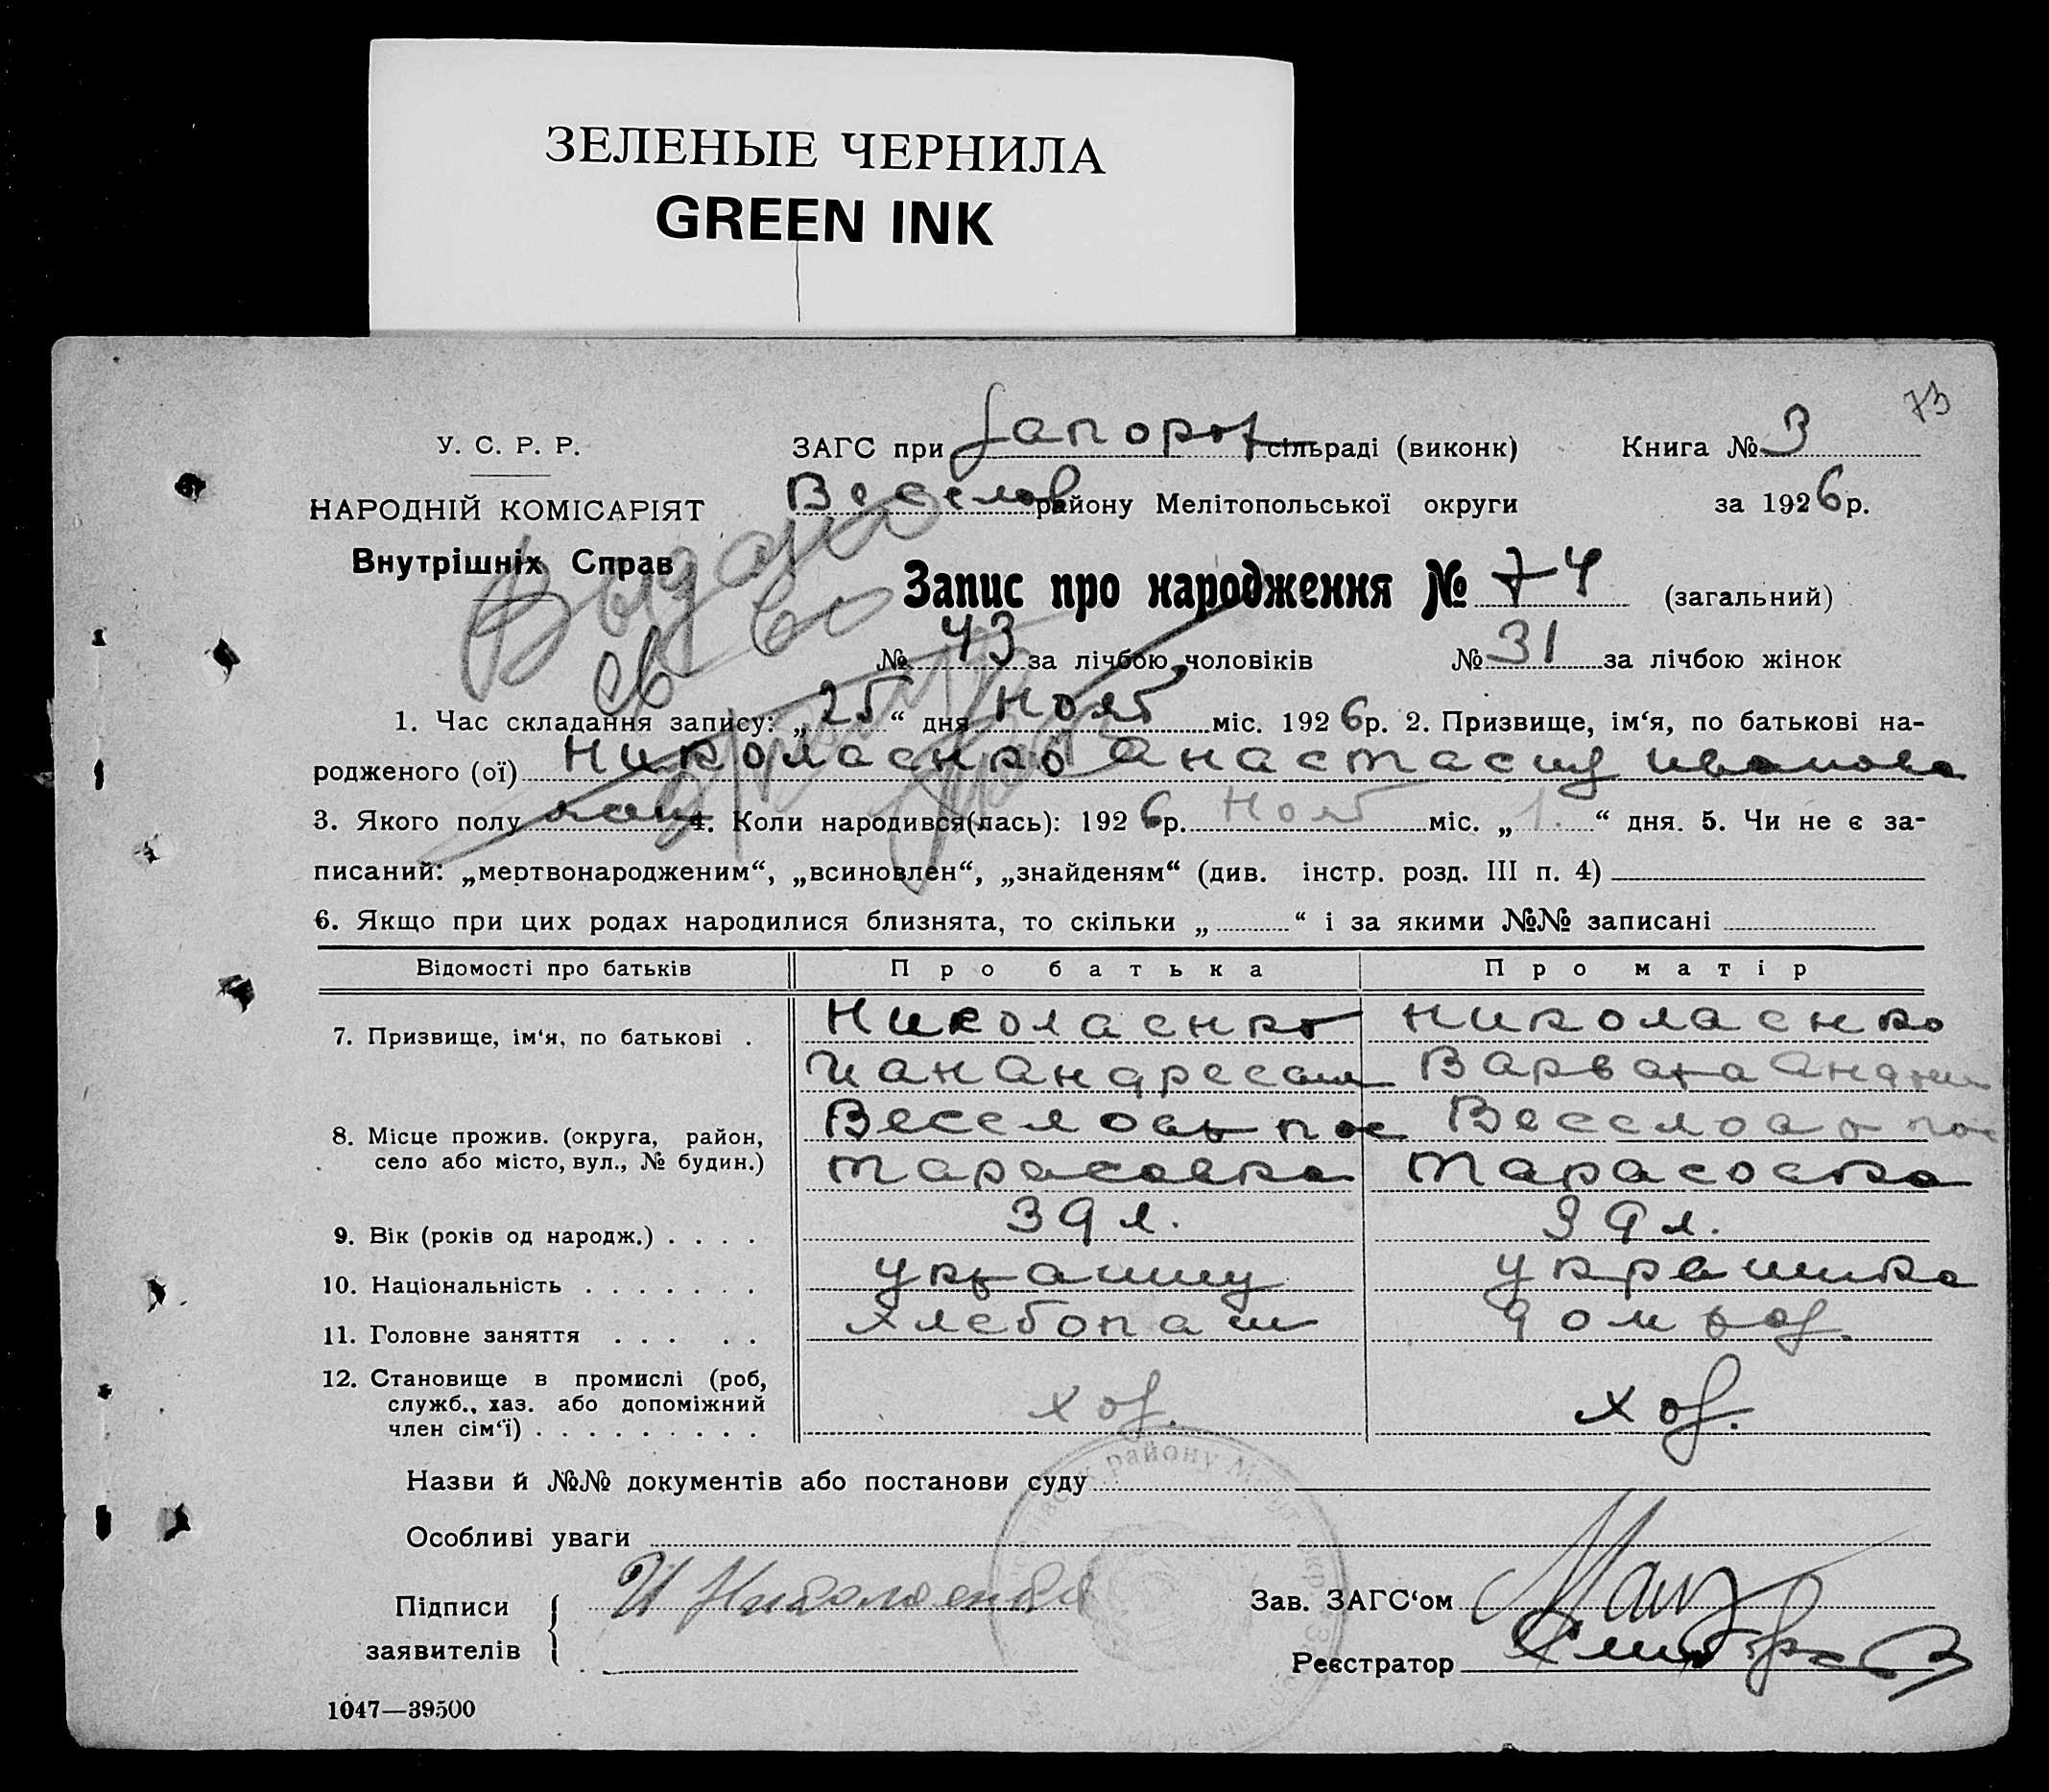 ЗЕЛЕНЫЕ ЧЕРНИЛА
GREEN INK
73
У. С. Р. Р.
НАРОДНІЙ КОМІСАРІЯТ
Внутрішніх Справ
ЗАГС при Запорож сільраді (виконк) Книга № 3
Веселов району Мелітопольської округи за 1926 р.
Выдано
Запис про народження № 74 (загальний)
св во
№ 43 за лічбою чоловіків № 31 за лічбою жінок
1. Час складання запису: „25“ дня нояб міс. 1926 р. 2. Призвище, ім‘я, по батькові на-
родженого (ої) Николаенко Анастасия Иванова
3. Якого полу 4. Коли народився(лась): 1926 р. нояб міс. „1.“ дня. 5. Чи не є за-
писаний: „мертвонародженим“, „всиновлен“, „знайденям“ (див. інстр. розд. III п. 4)
6. Якщо при цих родах народилися близнята, то скільки „ “ і за якими №№ записані
Відомості про батьків Про батька Про матір
7. Призвище, ім‘я, по батькові . Николаенко Николаенко
Андреевич Варвара
8. Місце прожив. (округа, район, село або місто, вул., № будин.) Веселовь пос Веселовь пос
Тарасовка Тарасовка
9. Вік (років од народж.) . . . . 39 л. 39 л.
10. Національність . . . . . . . украинц украинка
11. Головне заняття . . . . . хлебопаш домхоз.
12. Становище в промислі (роб, служб., хаз. або допоміжний член сім‘ї) . . . . . . . . . хоз. хоз.
Назви й №№ документів або постанови суду
Особливі уваги
Підписи заявителів И Николаенко
Зав. ЗАГС‘ом
Реєстратор
1047—39500